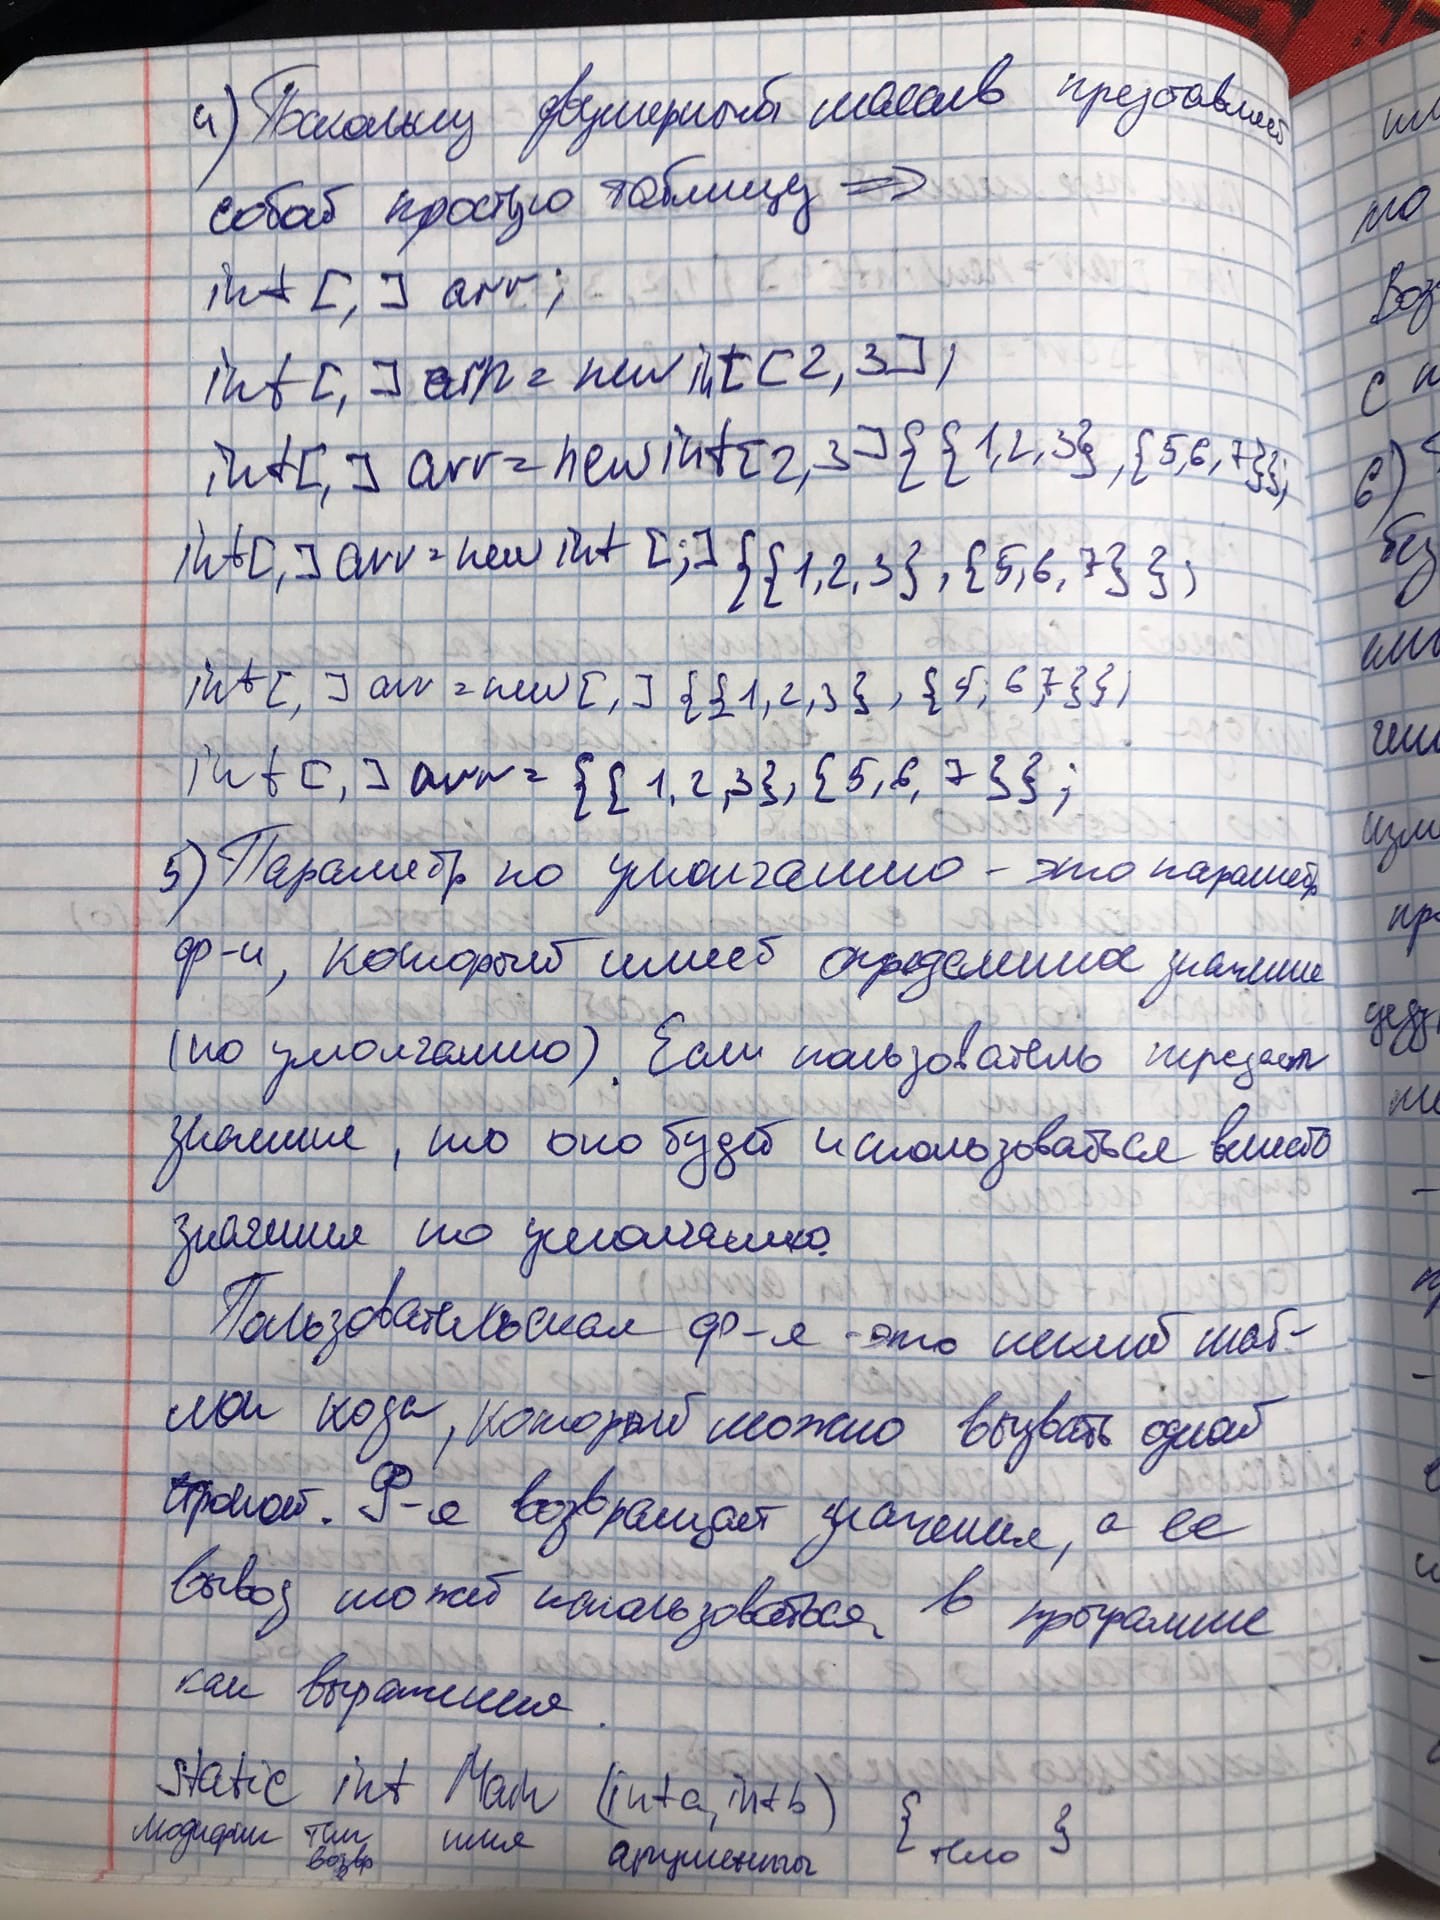 4) Поскольку двумерный массив представляет
собой простую таблицу =>
int [,] arr;
int [,] arr = new int [2,3];
int [,] arr = new int [2,3] {{1,2,3},{5,6,7}};
int [,] arr = new int [;] {{1,2,3},{5,6,7}};
int [,] arr = new [,] {{1,2,3},{5;6,7}};
int [,] arr = {{1,2,3},{5,6,7}};
5) Параметр по умолчанию - это параметр
ф-и, который имеет значение
(по умолчанию). Если пользователь передаст
значение, то оно будет использоваться вместо
значения по умолчанию.
Пользовательская ф-я - это некий шаб-
лон кода, который можно вызвать одной
строкой. Ф-я возвращает значения, а ее
вывоз может использоваться в программе
как выражения.
static int (int a, int b) { }
тип имя аргументы тело
возвр
6)
без